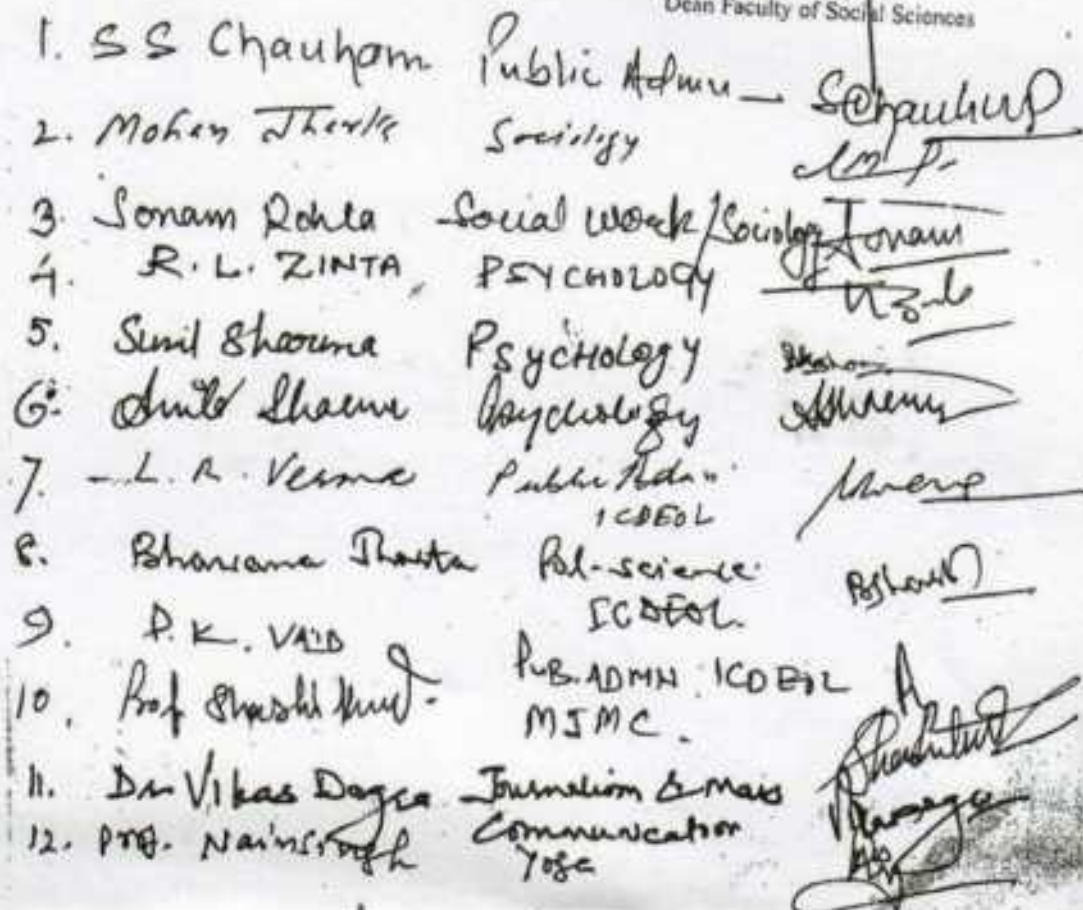 Dean Faculty of Social Sciences
1. S S Chauham Public Admn — SChauhan
2. Mohan Sociology
3. Sonam Rohta Social Work/Sociology Sonam
4. R. L. ZINTA PSYCHOLOGY
5. Sunil Sharma PSYCHology
6. Anita Sharma Psychology
7. L. R. Verma Public Admn
ICDEOL
8. Bhawana Jharta Pol-science
ICDEOL.
9. P. K. VAID PUB. ADMN ICDEOL
10. Prof Shashi MJMC.
11. Dr Vikas Dogra Journalism & Mass
Communication
12. Prof. Nainsingh Yoga